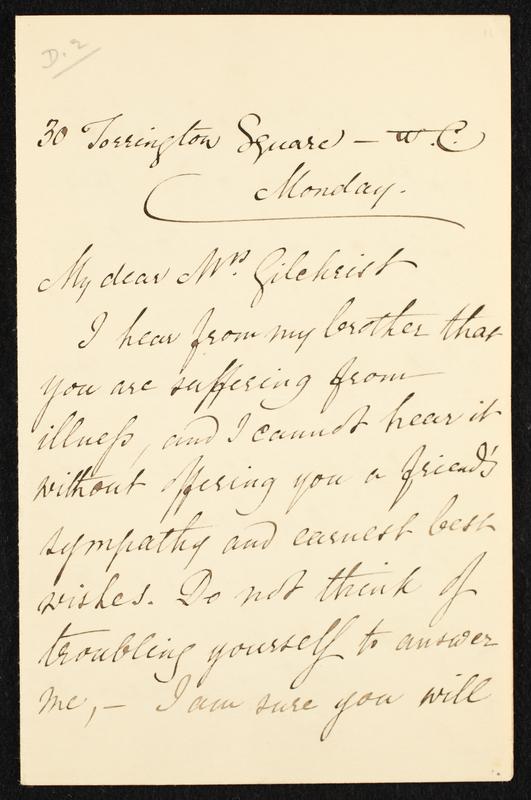 D.2
30 Torrington Square – W.C.
Monday.
My dear Mrs. Gilchrist
I hear from my brother that
you are suffering from
illness, and I cannot hear it
without offering you a friend's
sympathy and earnest best
wishes. Do not think of
troubling yourself to answer
me, – I am sure you will